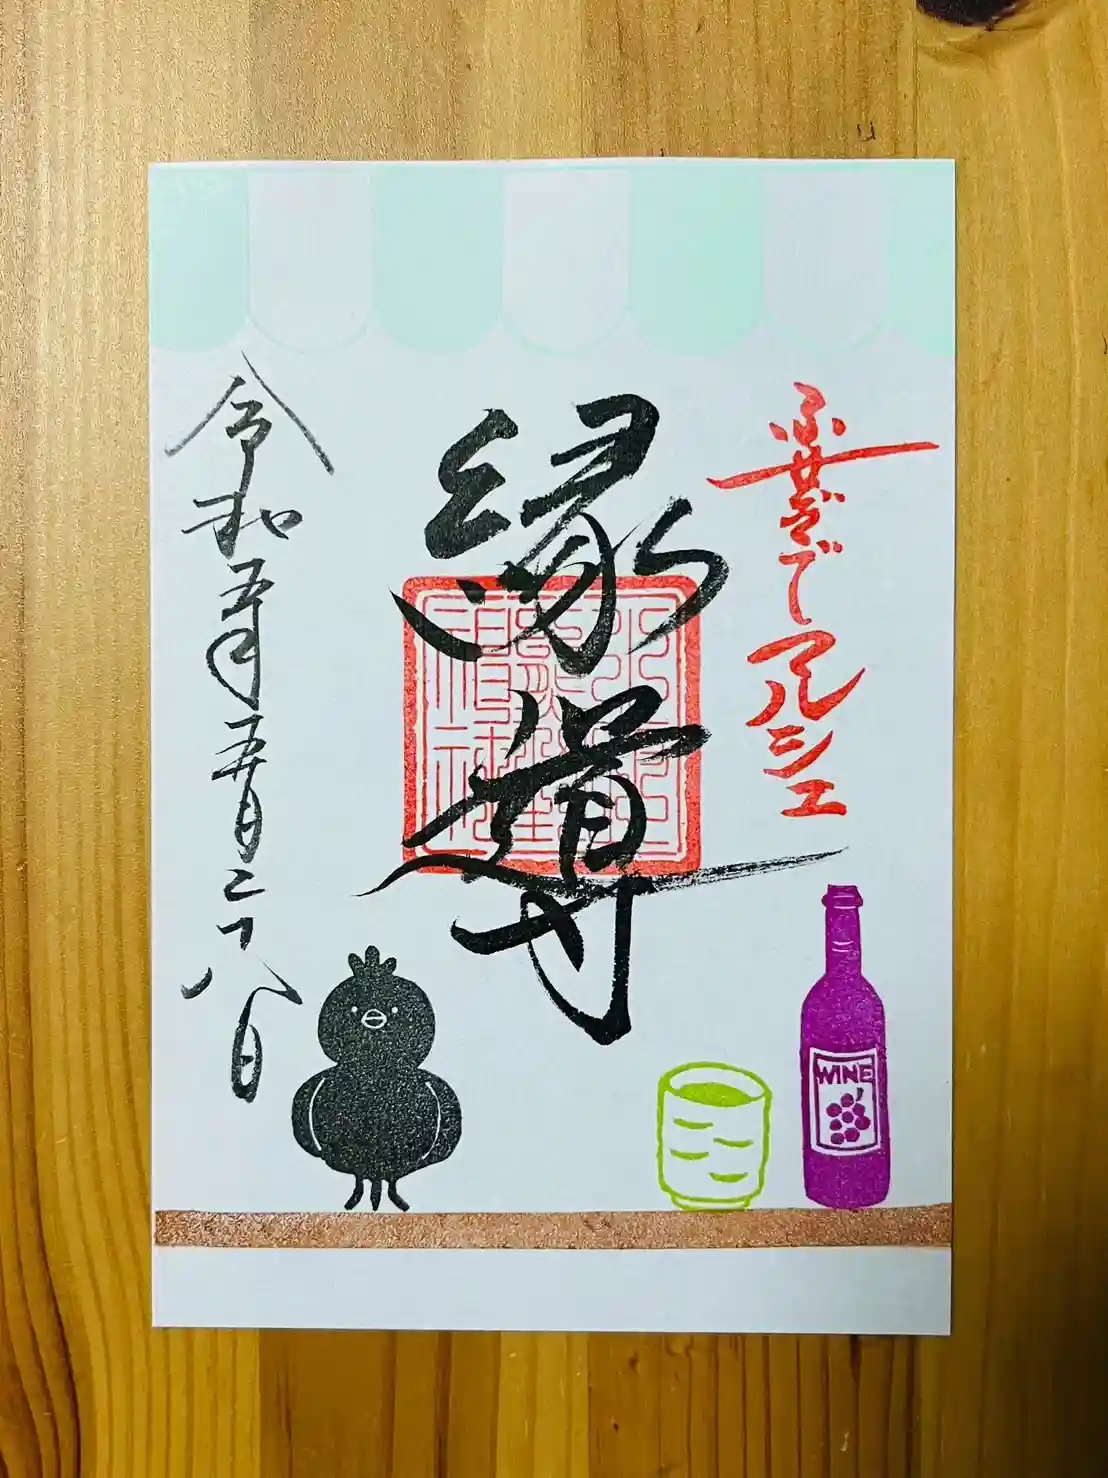 ふせぎでマルシェ
縁導
令和五年五月二十八日
WINE